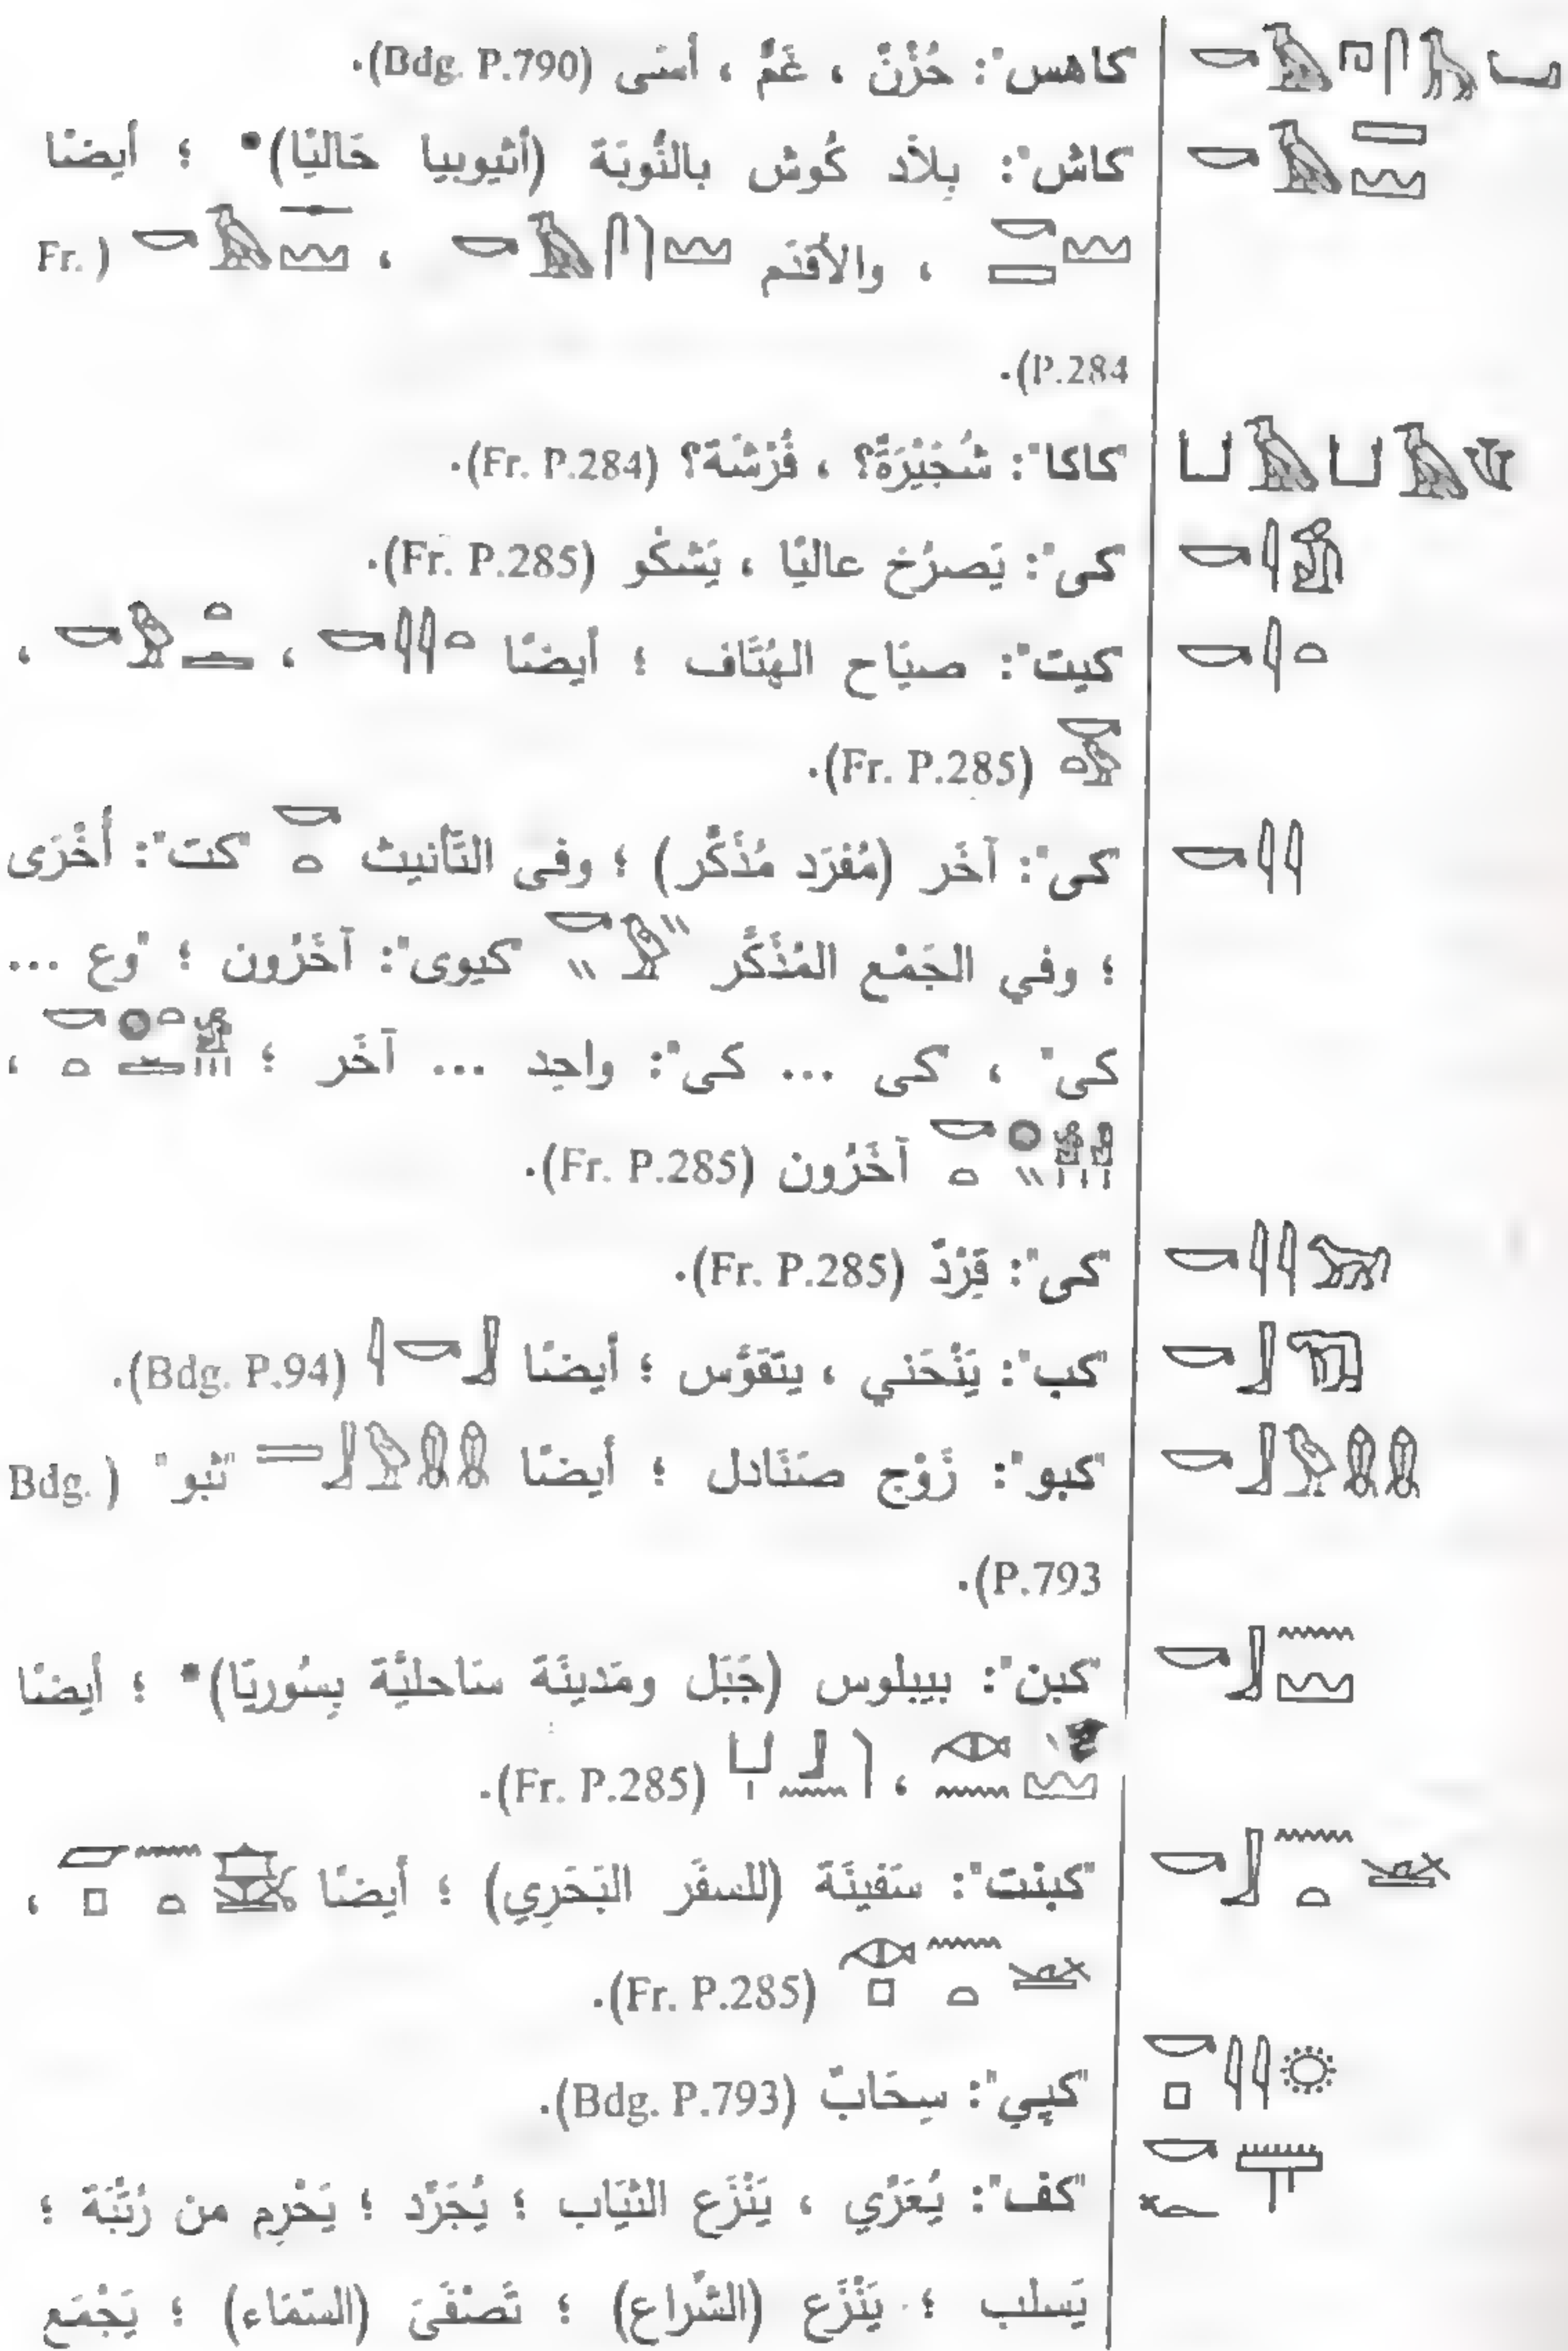 "كاهس": حُزْنٌ ، غَمٌّ ، أسَى (Bdg. P.790).
"كاش": بِلاَد كُوش بالنُّوبَة (أثيوبيا حَاليًا)* ؛ أيضًا
، والأَقدَم ، (Fr.
P.284).
"كاكا": شُجَيْرَةٌ؟ ، فُرْشَة؟ (Fr. P.284).
"كى": يَصرُخ عاليًا ، يَشكُو (Fr. P.285).
"كيت": صيَاح الهُتَاف ؛ أيضًا ، ،
(Fr. P.285).
"كى": آخَر (مُفرَد مُذَكَّر) ؛ وفى التَأنيث "كت": أُخْرَى
؛ وفي الجَمْع المُذَكَّر "كيوى": آخَرُون ؛ "وع ...
كى" ، "كى ... كى": واحِد ... آخَر ؛ ،
آخَرُون (Fr. P.285).
"كى": قِرْدٌ (Fr. P.285).
"كب": يَنْحَني ، يتَقوَّس ؛ أيضًا (Bdg. P.94).
"كبو": زَوْج صَنَادل ؛ أيضًا "ثبو" (Bdg.
P.793).
"كبن": بيبلوس (جَبَل ومَدينَة سَاحليَّة بِسُوريَا)* ؛ أيضًا
، (Fr. P.285).
"كبنت": سَفينَة (للسفَر البَحَرِي) ؛ أيضًا ،
(Fr. P.285).
"كپي": سِحَابٌ (Bdg. P.793).
"كف": يُعَرِّي ، يَنْزَع الثيَاب ؛ يُجَرِّد ؛ يَحْرِم من رُتْبَة ؛
يَسلب ؛ يَنْزَع (الشِّراع) ؛ تَصْفَى (السّمَاء) ؛ يَجْمَع